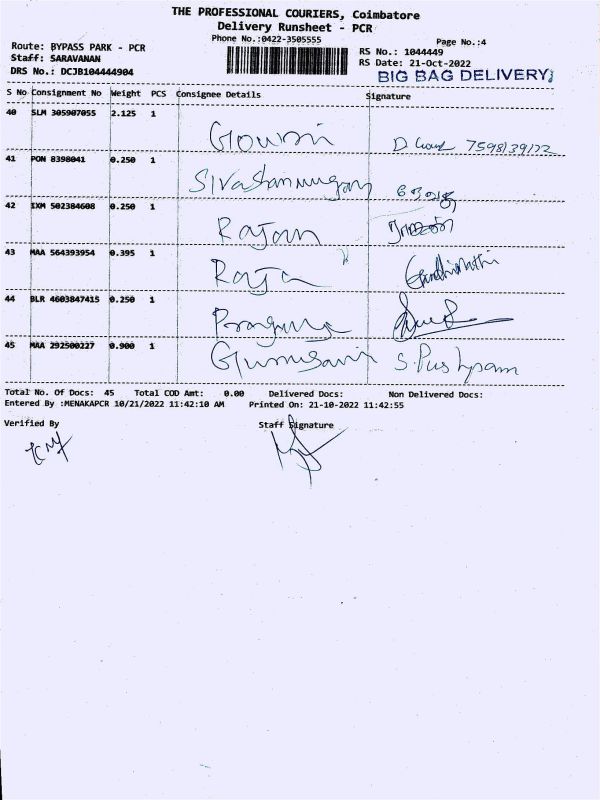 THE PROFESSIONAL COURIERS, Coimbatore
Delivery Runsheet - PCR
Phone No.:0422-3505555
Page No.:4
Route: BYPASS PARK - PCR
RS No.: 1044449
Staff: SARAVANAN
RS Date: 21-Oct-2022
DRS No.: DCJB104444904
BIG BAG DELIVERY
S No Consignment No Weight PCS Consignee Details Signature
40 SLM 305907055 2.125 1
Gowri 7598139172
41 PON 8398041 0.250 1
Sivashanmugam
42 IXM 502384608 0.250 1
Rajan
43 MAA 564393954 0.395 1
Raja Gandhimathi
44 BLR 4603847415 0.250 1
45 MAA 292500227 0.900 1
S. Pushpam
Total No. Of Docs: 45 Total COD Amt: 0.00 Delivered Docs: Non Delivered Docs:
Entered By :MENAKAPCR 10/21/2022 11:42:10 AM Printed On: 21-10-2022 11:42:55
Verified By Staff Signature